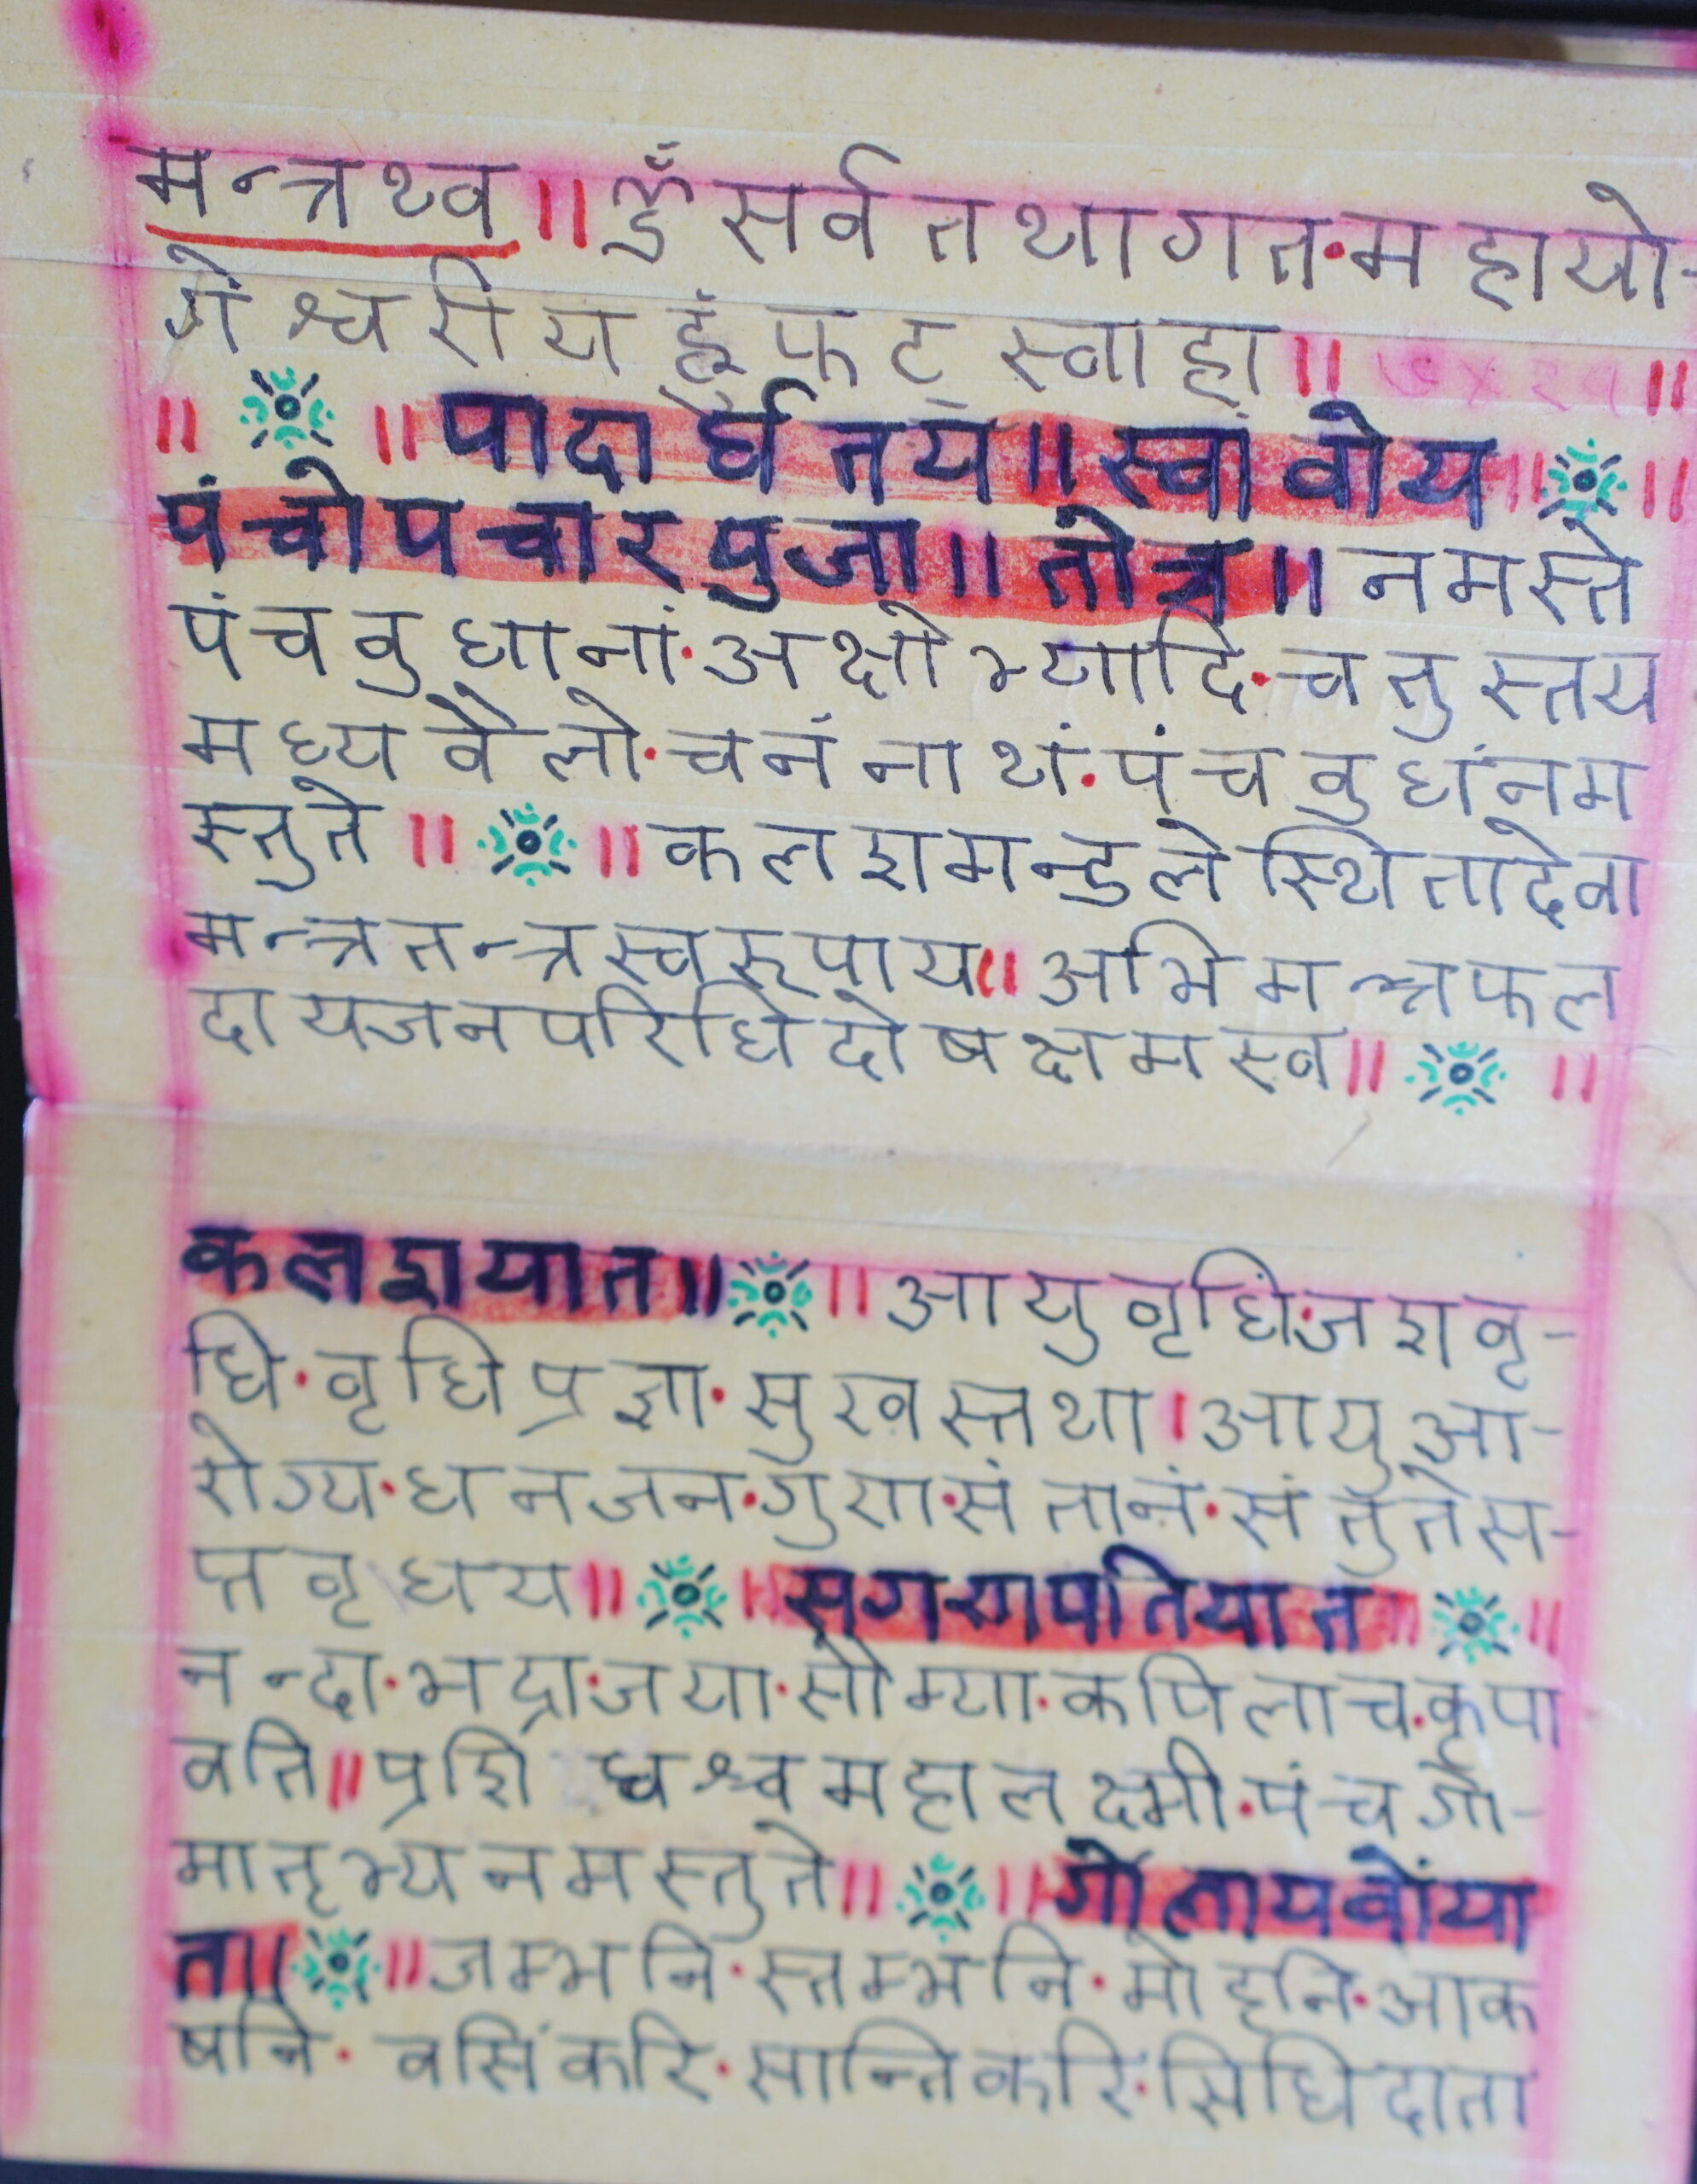 मन्त्रथ्व॥ ॐ सर्व तथागत·महायो-
गेश्वरीय हूं फट् स्वाहा॥ ॥
॥ ॥ पादार्घ तय॥ स्वां वोय ॥ ॥
पंचोपचार पुजा॥ तोत्र॥ नमस्ते
पंचवुधानां·अक्षोभ्यादि·चतुस्तय
मध्य वैलो·चनं नाथं·पंच वुधांनम
स्तुते॥ ॥ कलशमन्डुले स्थितादेवा
मन्त्रतन्त्रस्वरूपाय॥ अभिमन्त्रफल
दायजनपरिधिदोषक्षमस्व॥ ॥
कलशयात॥ ॥ आयुवृधिं·जशवृ-
धि·वृधिप्रज्ञा·सुखस्तथा। आयुआ-
रोग्य·धनजन·गुण·संतानं·संतुतेस-
प्तवृधय॥ ॥ सगणपतियात ॥ ॥
नन्दा·भद्रा·जया·सौम्या·कपिलाच·कृपा
वति॥ प्रशि धश्वमहालक्ष्मी·पंचगौ-
मातृभ्यनमस्तुते॥ ॥ गोलायवोंया
त॥ ॥ जम्भनि·स्तम्भनि·मोहनि·आक
षनि· वसिंकरि·सान्तिकरि·सिधिदाता